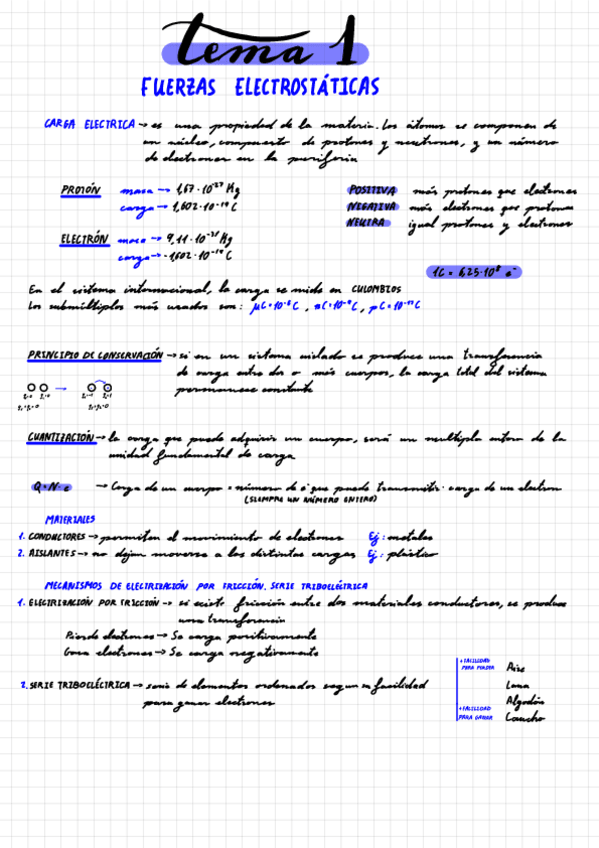 tema 1
FUERZAS ELECTROSTÁTICAS
CARGA ELECTRICA → es una propiedad de la materia. Los átomos se componen de
un núcleo, compuesto de protones y neutrones, y un número
de electrones en la periferia
PROTÓN masa → 1,67·10⁻²⁷ Kg
carga → 1,602·10⁻¹⁹ C
POSITIVA más protones que electrones
NEGATIVA más electrones que protones
NEUTRA igual protones y electrones
ELECTRÓN masa → 9,11·10⁻³¹ Kg
carga → -1,602·10⁻¹⁹ C
1C = 6,25·10¹⁸ e⁻
En el sistema internacional, la carga se mide en CULOMBIOS
Los submúltiplos más usados son: μC=10⁻⁶C, nC=10⁻⁹C, pC=10⁻¹²C
PRINCIPIO DE CONSERVACIÓN → si en un sistema aislado se produce una transferencia
de carga entre dos o más cuerpos, la carga total del sistema
permanece constante
CUANTIZACIÓN → la carga que puede adquirir un cuerpo, será un multiplo entero de la
unidad fundamental de carga
Q = N·e → Carga de un cuerpo = número de e⁻ que puede transmitir · carga de un electron
(SIEMPRE UN NÚMERO ENTERO)
MATERIALES
1. CONDUCTORES → permiten el movimiento de electrones Ej: metales
2. AISLANTES → no dejan moverse a las distintas cargas Ej: plástico
MECANISMOS DE ELECTRIZACIÓN POR FRICCIÓN. SERIE TRIBOELÉCTRICA
1. ELECTRIZACIÓN POR FRICCIÓN → si existe fricción entre dos materiales conductores, se produce
una transferencia
Pierde electrones → Se carga positivamente
Gana electrones → Se carga negativamente
2. SERIE TRIBOELÉCTRICA → serie de elementos ordenados segun su facilidad
para ganar electrones
+ FACILIDAD
PARA PERDER
Aire
Lana
Algodón
+ FACILIDAD
PARA GANAR
Caucho